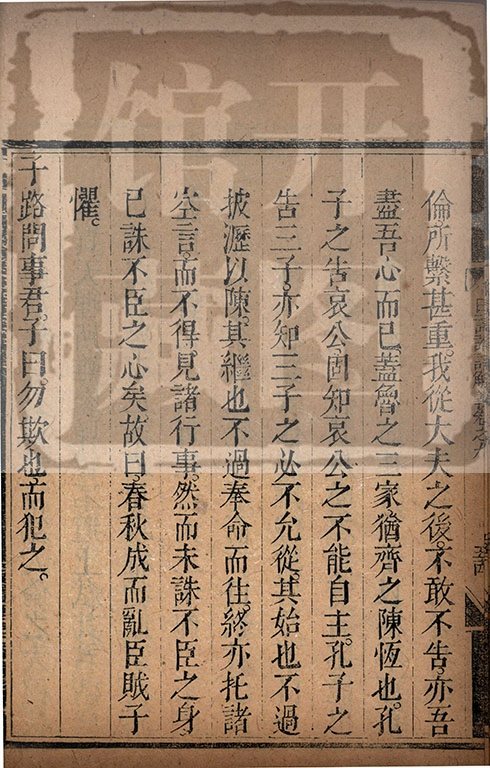 倫所繫甚重。我從大夫之後。不敢不告。亦吾
盡吾心而已。蓋魯之三家。猶齊之陳恆也。孔
子之告哀公。固知哀公之不能自主。孔子之
告三子。亦知三子之必不允從。其始也不過
披瀝以陳。其繼也不過奉命而往。終亦托諸
空言。而不得見諸行事。然而未誅不臣之身
已誅不臣之心矣。故曰。春秋成而亂臣賊子
懼。
子路問事君。子曰。勿欺也。而犯之。